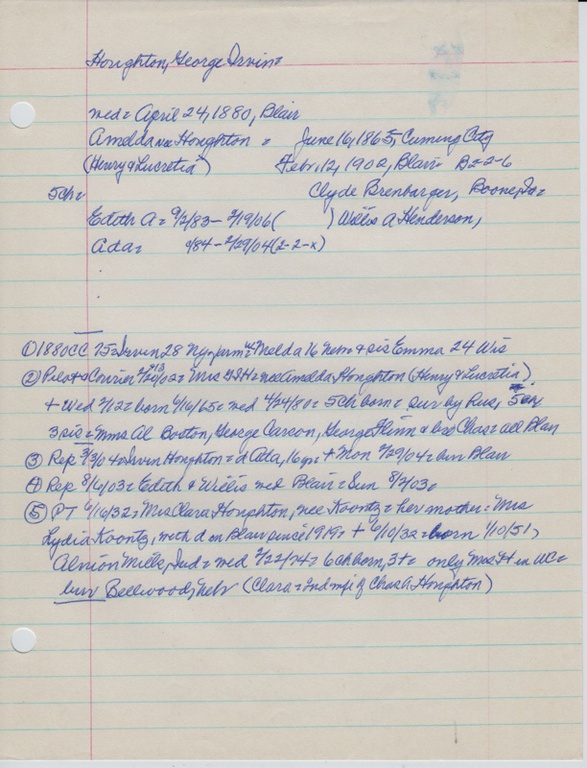 Houghton, George Irvin=
med= April 24, 1880, Blair
Amelda nee Houghton = June 16, 1865, Cuming City
(Henry & Lucretia) Febr. 12, 1902, Blair B=2-6
5ch= Clyde Brenbarger, Boone, Ia=
Edith A= 9/2/83 - 2/19/06 ( ) Willis A Henderson,
Ada= /84 - 2/29/04 (2-2-x)
① 1880CC 75= Irvin 28 Ny-farm= wf Melda 16 Neb= & sis Emma 24 Wis
② Pilot & Courier 2/13/02= Mrs G I H= nee Amelda Houghton (Henry & Lucretia)
+ Wed 2/12= born 6/16/65= med 4/24/80= 5ch born= sur by hus, 5ch
3 sis= Mmes Al Boston, George Carson, George Flinn & bro Chas= all Blair
③ Rep 3/3/04= Irvin Houghton= d Ada, 16 yrs + Mon 2/29/04= bur Blair
④ Rep 8/6/03= Edith & Willis med Blair= Sun 8/2/03=
⑤ PT 6/16/32= Mrs Clara Houghton, nee Koontz= her mother= Mrs
Lydia Koontz, with d on Blair since 1919= + 6/10/32= born 1/10/51,
Mills, Ind= med 2/22/74= 6ch born, 3+= only Mrs H in WC=
bur Bellwood, Nebr (Clara= 2nd wf of Chas A Houghton)